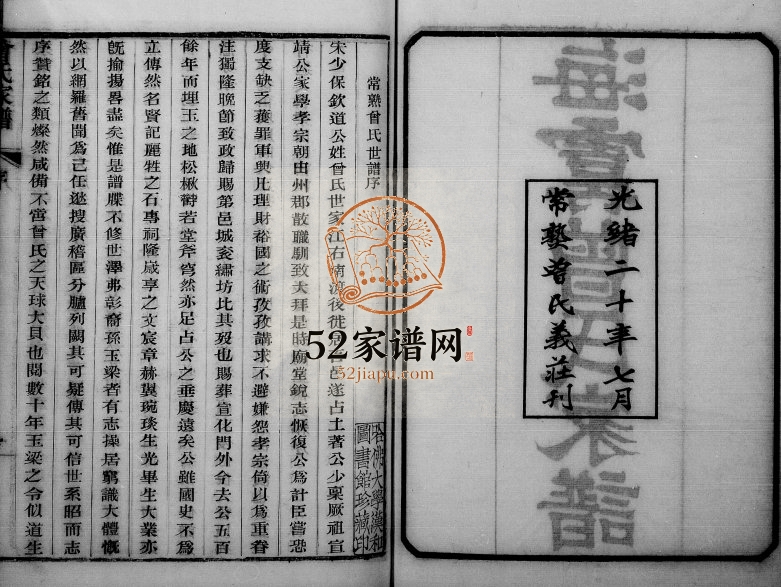 光緒二十年七月
常熟曾氏義莊刊
海虞曾氏家譜
哈佛大學漢和
圖書館珍藏印
常熟曾氏世譜序
宋少保欽道公姓曾氏世家江右南渡後徙邑遂占土著公少稟厥祖宣
靖公家學孝宗朝由州郡散職馴致大拜是時廟堂銳志恢復公爲計臣嘗恐
度支缺乏獲罪軍興凡理財裕國之術孜孜講求不避嫌怨孝宗倚以爲重眷
注獨隆晚節致政歸賜第邑城衮繡坊比其歿也賜葬宣化門外今去公五百
餘年而埋玉之地松楸鬱若堂斧穹然亦足占公之垂慶遠矣公雖國史不爲
立傳然名賢記麗牲之石專祠隆歲享之文宸章赫琬琰生光畢生大業亦
旣揄揚畧盡矣惟是譜牒不修世澤弗彰裔孫玉梁者有志操居窮識大體慨
然以網羅舊聞爲己任遐搜廣稽區分臚列闕其可疑傳其可信世系昭而志
序贊銘之類燦然咸備不啻曾氏之天球大貝也閱數十年玉梁之令似道生
曾氏家譜
序
52家谱网
52jiapu.com